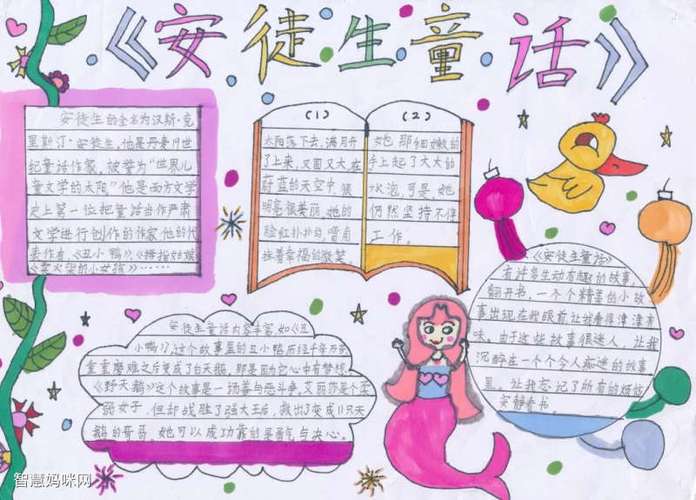 《安徒生童话》
安徒生的全名为汉斯·克
里斯汀·安徒生,他是丹麦19世
纪童话作家,被誉为“世界儿
童文学的太阳”他是西方文学
史上第一位把童话当作严肃
文学进行创作的作家,他的代
表作有《丑小鸭》《拇指姑娘》
《卖火柴的小女孩》……
(1)
太阳落下去,满月升
了上来,又圆又大,在
蔚蓝的天空中,很
明亮很美丽,她的
脸红扑扑的,嘴角
挂着幸福的微笑。
(2)
她那细嫩的
手上起了大大的
水泡,可是她
仍然坚持不停
工作。
安徒生童话内容丰富,如《丑
小鸭》,这个故事里的丑小鸭历经千辛万苦
重重磨难之后变成了白天鹅,那是因为它心中有梦想
《野天鹅》这个故事是一场善与恶斗争,艾丽莎是个柔
弱女子,但却战胜了强大王后,救出了变成11只天
鹅的哥哥。她可以成功靠的是勇气与决心。
《安徒生童话》
有许多生动有趣的故事,
翻开书,一个个精美的小故
事出现在我眼前,让我看得津津有
味。由于这些故事很迷人,让我
沉醉在一个个令人痴迷的故事
里。让我忘记了所有的烦恼
安静看书。
智慧妈咪网